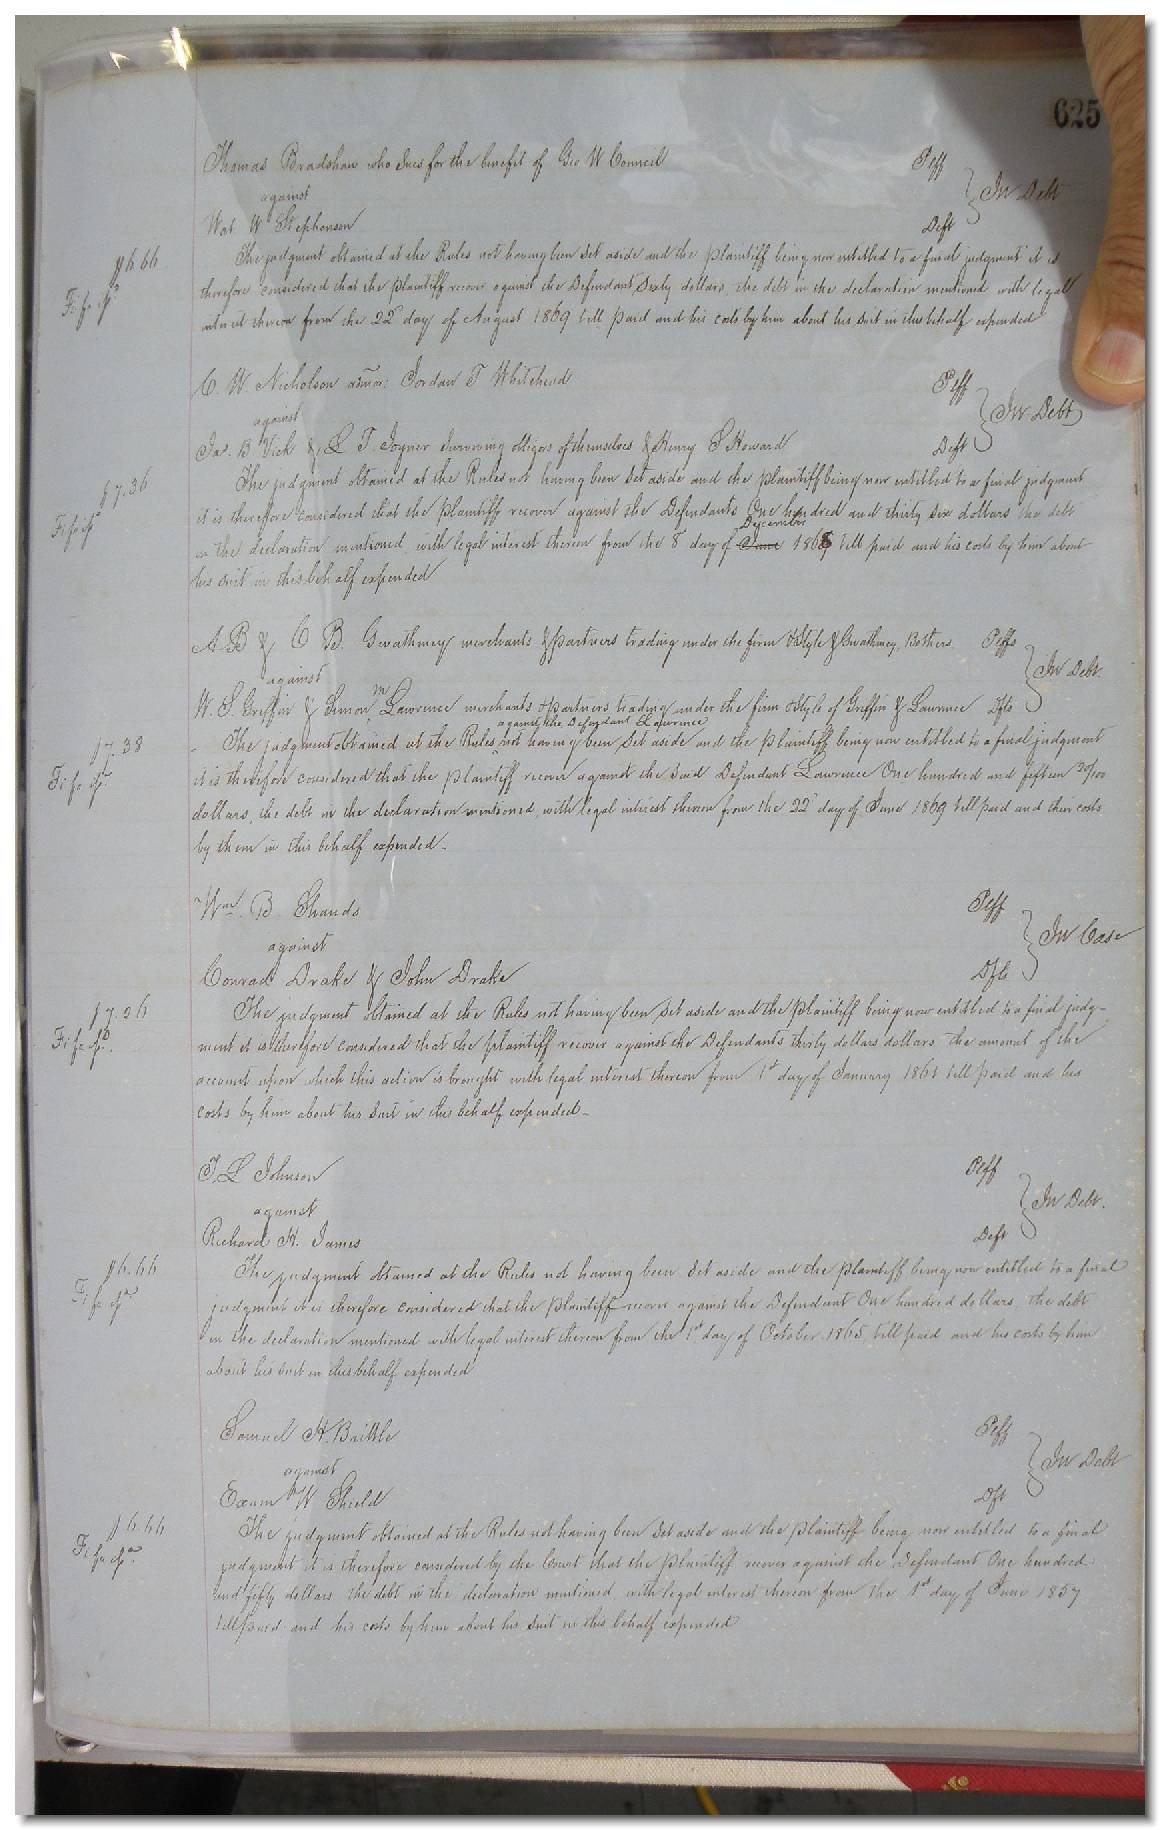 625
Thomas Bradshaw who sues for the benefit of Geo W Council Plff
against In Debt
Wat. W Stephenson Deft
$6.66 The judgment obtained at the Rules not having been set aside and the plaintiff being now entitled to a final judgment it is
Fi fa therefore considered that the plaintiff recover against the Defendant Sixty dollars, the debt in the declaration mentioned with legal
interest thereon from the 22d day of August 1869 till paid and his costs by him about his suit in this behalf expended
C. W. Nicholson Jordan T Whitehead Plff
against In Debt
Jas. B Vick & L T. Joyner surviving obligors of themselves & Henry S Howard Deft
$7.36 The judgment obtained at the Rules not having been set aside and the plaintiff being now entitled to a final judgment
Fi fa it is therefore considered that the plaintiff recover against the Defendants One hundred and thirty six dollars the debt
December
in the declaration mentioned, with legal interest thereon from the 8 day of June 1868 till paid and his costs by him about
his suit in this behalf expended
A B & C B. Gwathmey merchants & partners trading under the firm & style of Gwathmey, Bothers. Plffs
against In Debt.
W. S. Griffin & Simon M Lawrence merchants & partners trading under the firm & style of Griffin & Lawrence Dfts
against the Defendant Lawrence
$7.38 The judgment obtained at the Rules not having been set aside and the plaintiff being now entitled to a final judgment
Fi fa it is therefore considered that the plaintiff recover against the said Defendant Lawrence One hundred and fifteen 30/100
dollars, the debt in the declaration mentioned, with legal interest thereon from the 22d day of June 1869 till paid and their costs
by them in this behalf expended.
Wm. B Shands Plff
against In Case
Conrad Drake & John Drake Dfts
$7.36 The judgment obtained at the Rules not having been set aside and the plaintiff being now entitled to a final judg-
Fi fa ment it is therefore considered that the plaintiff recover against the Defendants thirty dollars dollars the amount of the
account upon which this action is brought with legal interest thereon from 1st day of January 1861 till paid and his
costs by him about his suit in this behalf expended-
J. L Johnson Plff
against In Debt.
Richard H. James Deft
$6.66 The judgment obtained at the Rules not having been set aside and the plaintiff being now entitled to a final
Fi fa judgment it is therefore considered that the plaintiff recover against the Defendant One hundred dollars, the debt
in the declaration mentioned with legal interest thereon from the 1st day of October 1865, till paid and his costs by him
about his suit in this behalf expended
Samuel H. Brittle Plff
against In Debt
Exum W Shield Dft
$6.66 The judgment obtained at the Rules not having been set aside and the plaintiff being now entitled to a final
Fi fa judgment it is therefore considered by the Court that the plaintiff recover against the Defendant One hundred
and fifty dollars the debt in the declaration mentioned with legal interest thereon from the 1st day of June 1857
till paid and his costs by him about his suit in this behalf expended